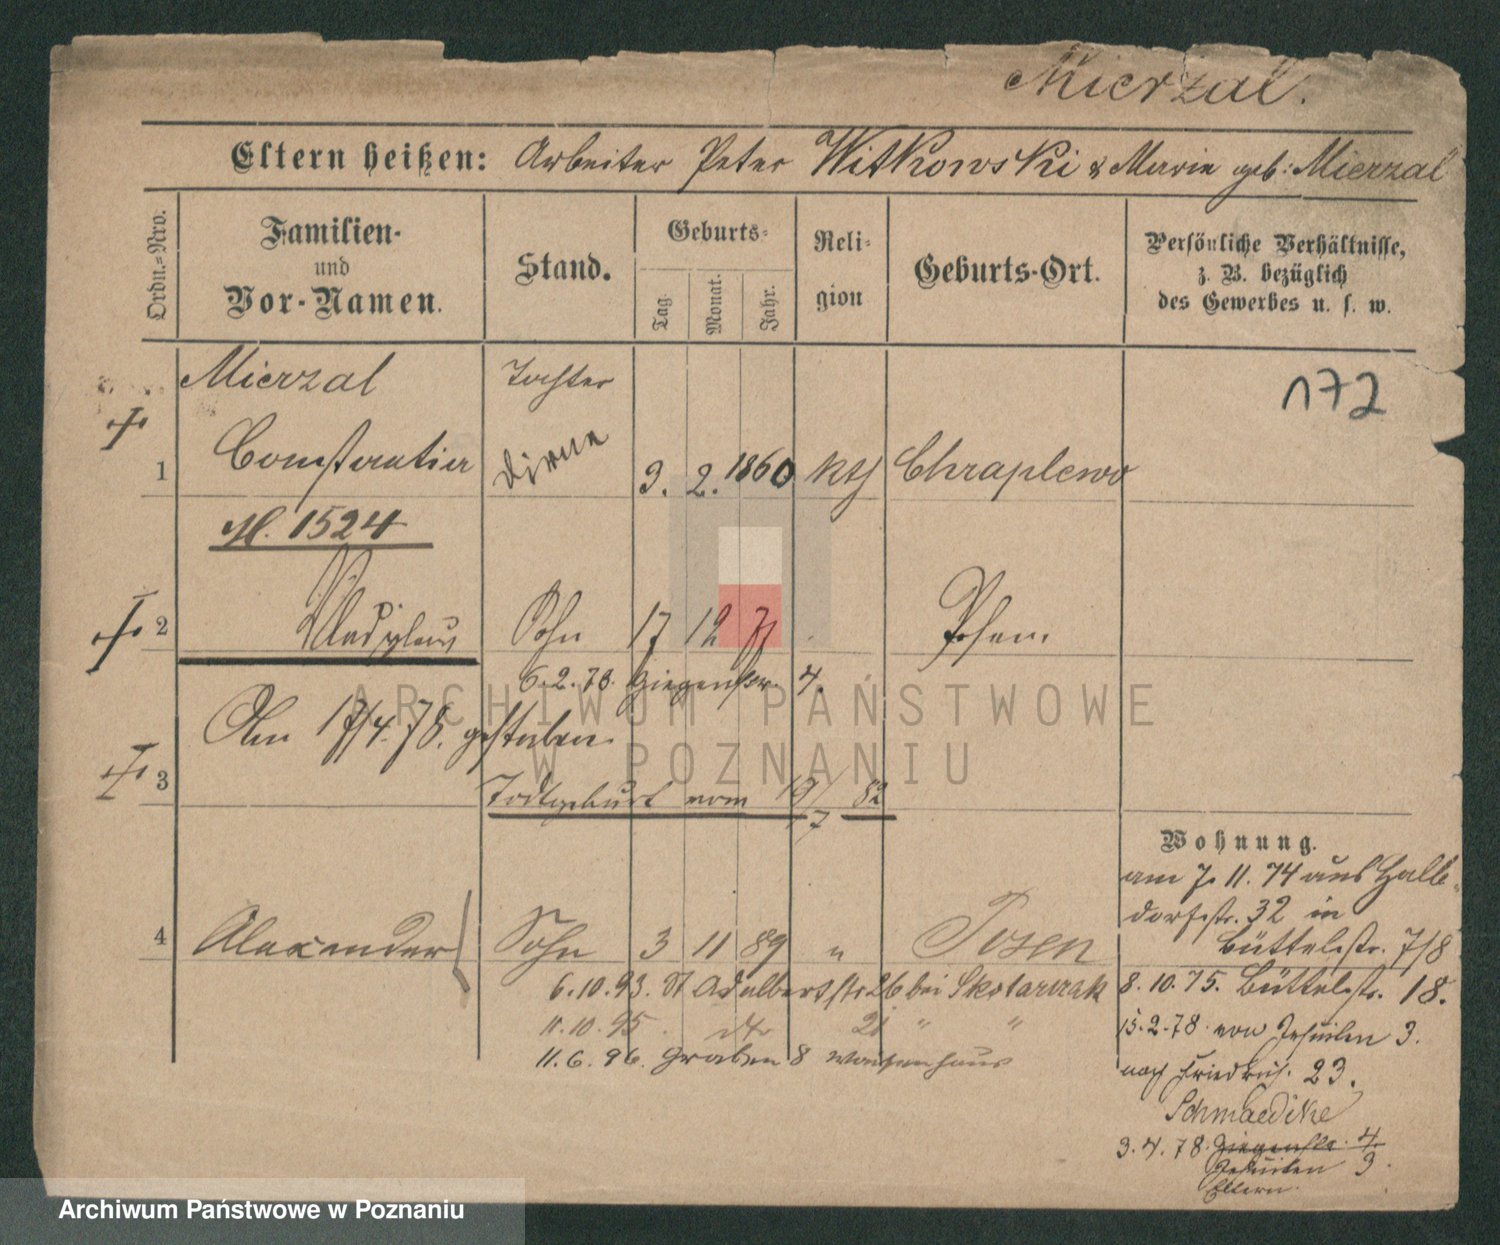 Mierzal.
Eltern heißen: Arbeiter Peter Witkowski & Marie geb: Mierzal
Ordn.-Nro.
Familien-
und
Vor-Namen.
Stand.
Geburts-
Tag.
Monat.
Jahr.
Reli-
gion
Geburts-Ort.
Persönliche Verhältnisse,
z. B. bezüglich
des Gewerbes u. s. w.
Mierzal Tochter
172
1 Constantia Dirne 3. 2. 1860 kth Chraplewo
M. 1524
2 Wladislaus Sohn 17 12 77 Posen.
6.2.78. 4.
Den 17/4.78. gestorben.
3
Todtgeburt vom 19/7 82
Wohnung.
am 7. 11. 74 aus Halb-
dorfstr. 32 in
Büttelstr. 7/8
4 Alexander Sohn 3 11 89 " Posen
6.10.93. St Adalbertstr 26 bei Skotarczak
8.10.75. Büttelstr. 18.
11.10.95. dto 21 " "
15.2.78. von Jesuiten 3.
11.6.96. Graben 8 Waisenhaus
nach Friedrich. 23.
Schmaedike
3.4.78. 4.
Jesuiten 3.
Eltern.
ARCHIWUM PAŃSTWOWE
W POZNANIU
Archiwum Państwowe w Poznaniu